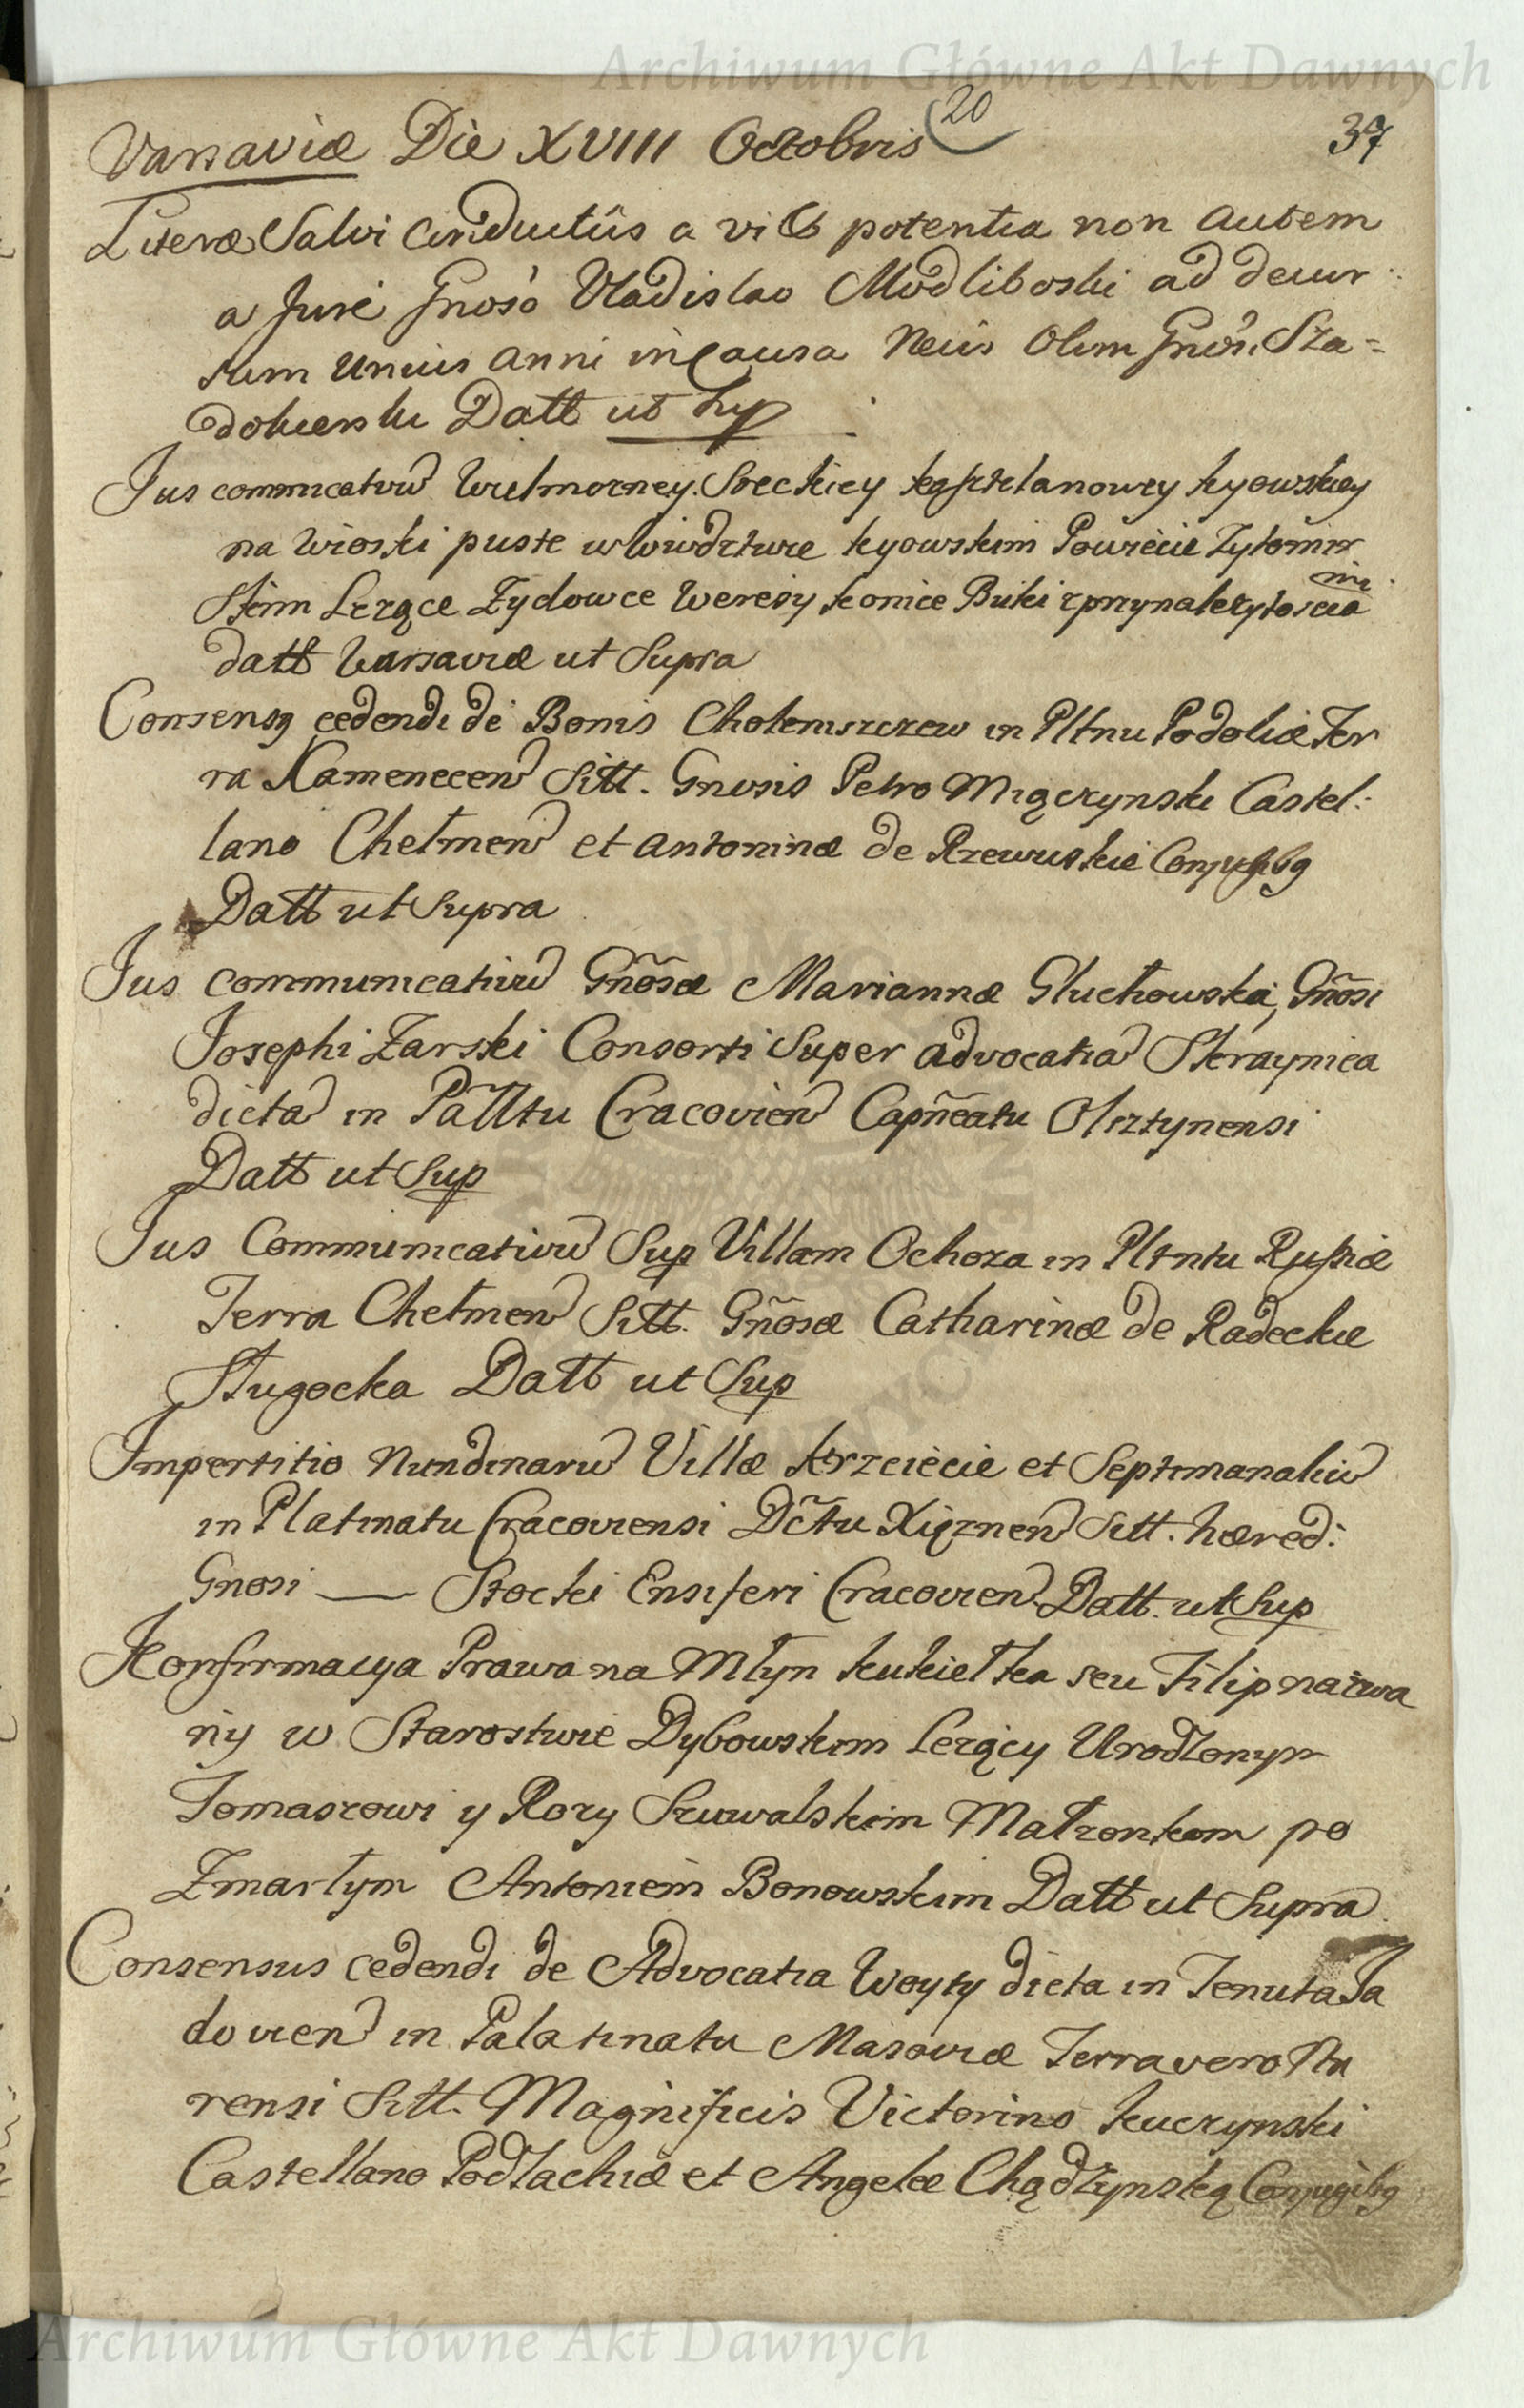 Archiwum Główne Akt Dawnych
20
37
Varsaviæ Die XVIII Octobris
Literæ Salvi Conductûs a vi & potentia non autem
a Jure Gnoso Vladislao Modliboski ad decur
sum unius anni in Causa Necis Olim Gnosi Sza=
dokierski Datt ut Sup
Jus communicativũ Wielmozney Steckiey kasztelanowey kyowskiey
na wioski puste w Woiwdztwie kyowskim Powiecie Zytomir
skim Lezące Zydowce Weresy konice Buki z przynalezytoscia
mi
datt Varsaviæ ut Supra
Consensq cedendi de Bonis Chotemszczew in Pltnu Podoliæ Ter
ra Kamenecen Sitt. Gnosis Petro Miączynski Castel:
lano Chełmen et Antoninæ de Rzewuskie Conjugibq
Datt ut Supra
Jus communicativũ Gñosæ Mariannæ Głuchowska, Gñosi
Josephi Zarski Consorti Super advocatia Skraynica
dicta in Pãlttu Cracovien Capñeatu Olsztynensi
Datt ut Sup
Jus Communicativũ Sup Villam Ochoza in Pltntu Russiæ
Terra Chełmen Sitt. Gñosæ Catharinæ de Radeckie
Sługocka Datt ut Sup
Impertitio Nundinarũ Villæ Krzciecie et Septimanaliũ
in Platinatu Cracoviensi Dc̃tu Xiąznen Sitt. hæred:
Gnosi — Stocki Ensiferi Cracovien Datt. ut Sup
Konfirmacya Prawa na Młyn kukiełka seu Filip nazwa
ny w Starostwie Dybowskim lezący Urodzonym
Tomaszowi y Rozy Szuwalskim Małzonkom po
Zmarłym Antoniem Bonowskim Datt ut Supra
Consensus cedendi de Advocatia Woyty dicta in Tenuta Ja
dovien in Palatinatu Masoviæ Terra vero Nu
rensi Sitt. Magnificis Victorino kuczynski
Castellano Podlachiæ et Angelæ Chądzynską Conjugibq
Archiwum Główne Akt Dawnych